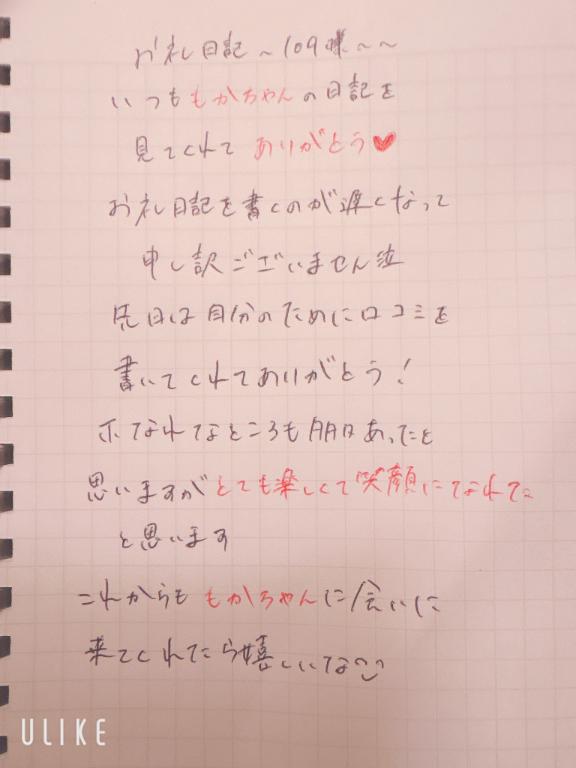 お礼日記〜109様〜〜
いつももかちゃんの日記を
見てくれてありがとう♥
お礼日記を書くのが遅くなって
申し訳ございません泣
先日は自分のために口コミを
書いてくれてありがとう!
不なれなところも多々あったと
思いますがとても楽しくて笑顔になれた
と思います
これからももかちゃんに会いに
来てくれたら嬉しいな
ULIKE